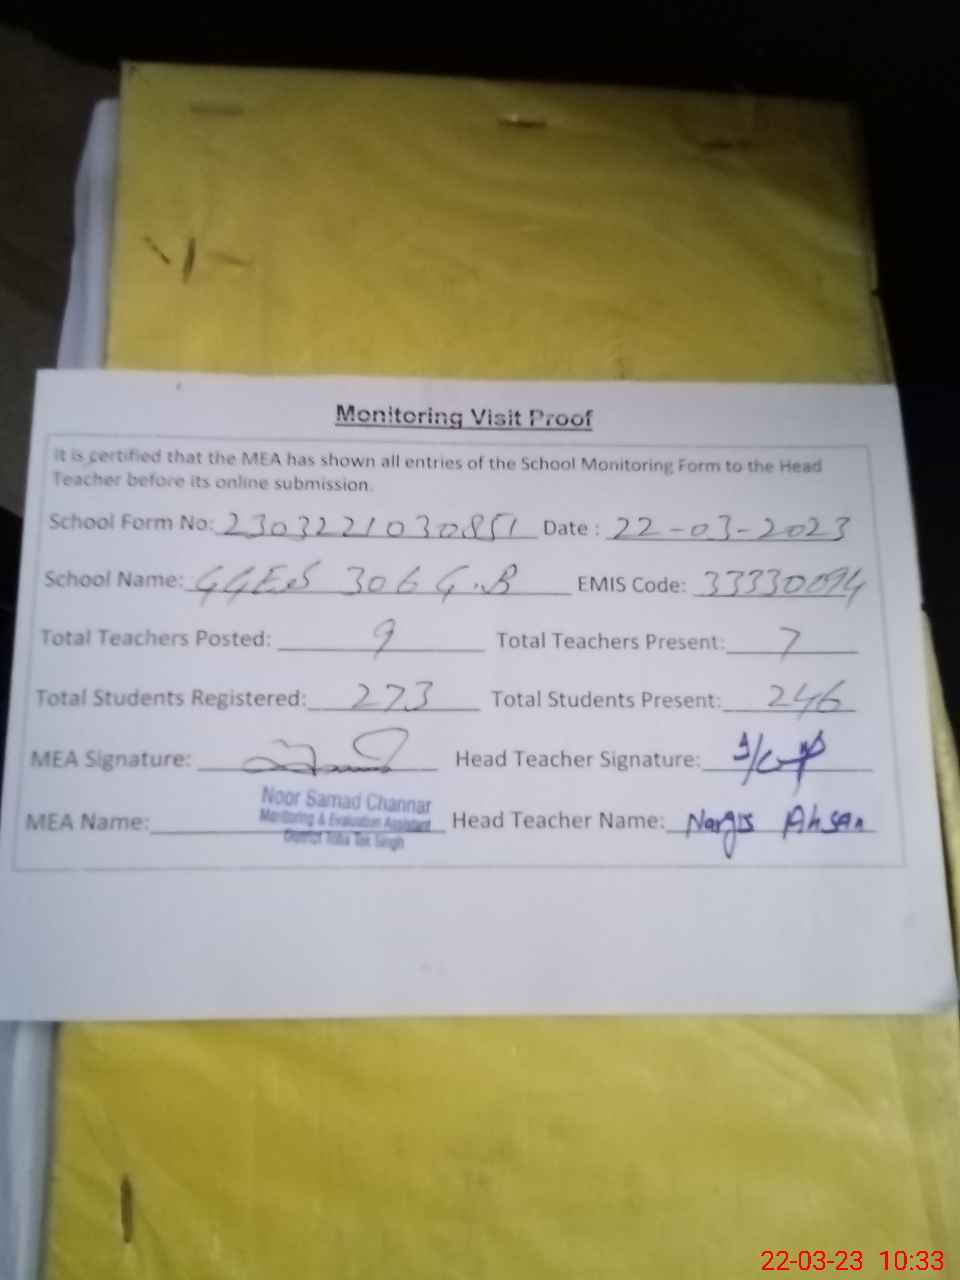 Monitoring Visit Proof
It is certified that the MEA has shown all entries of the School Monitoring Form to the Head
Teacher before its online submission.
School Form No: 2303221030851 Date : 22-03-2023
School Name: GGES 306 G.B EMIS Code: 33330094
Total Teachers Posted: 9 Total Teachers Present: 7
Total Students Registered: 273 Total Students Present: 246
MEA Signature: Head Teacher Signature:
Noor Samad Channar
Monitoring & Evaluation Assistant
MEA Name: Head Teacher Name: Nargis Ahsan
District Toba Tek Singh
22-03-23 10:33